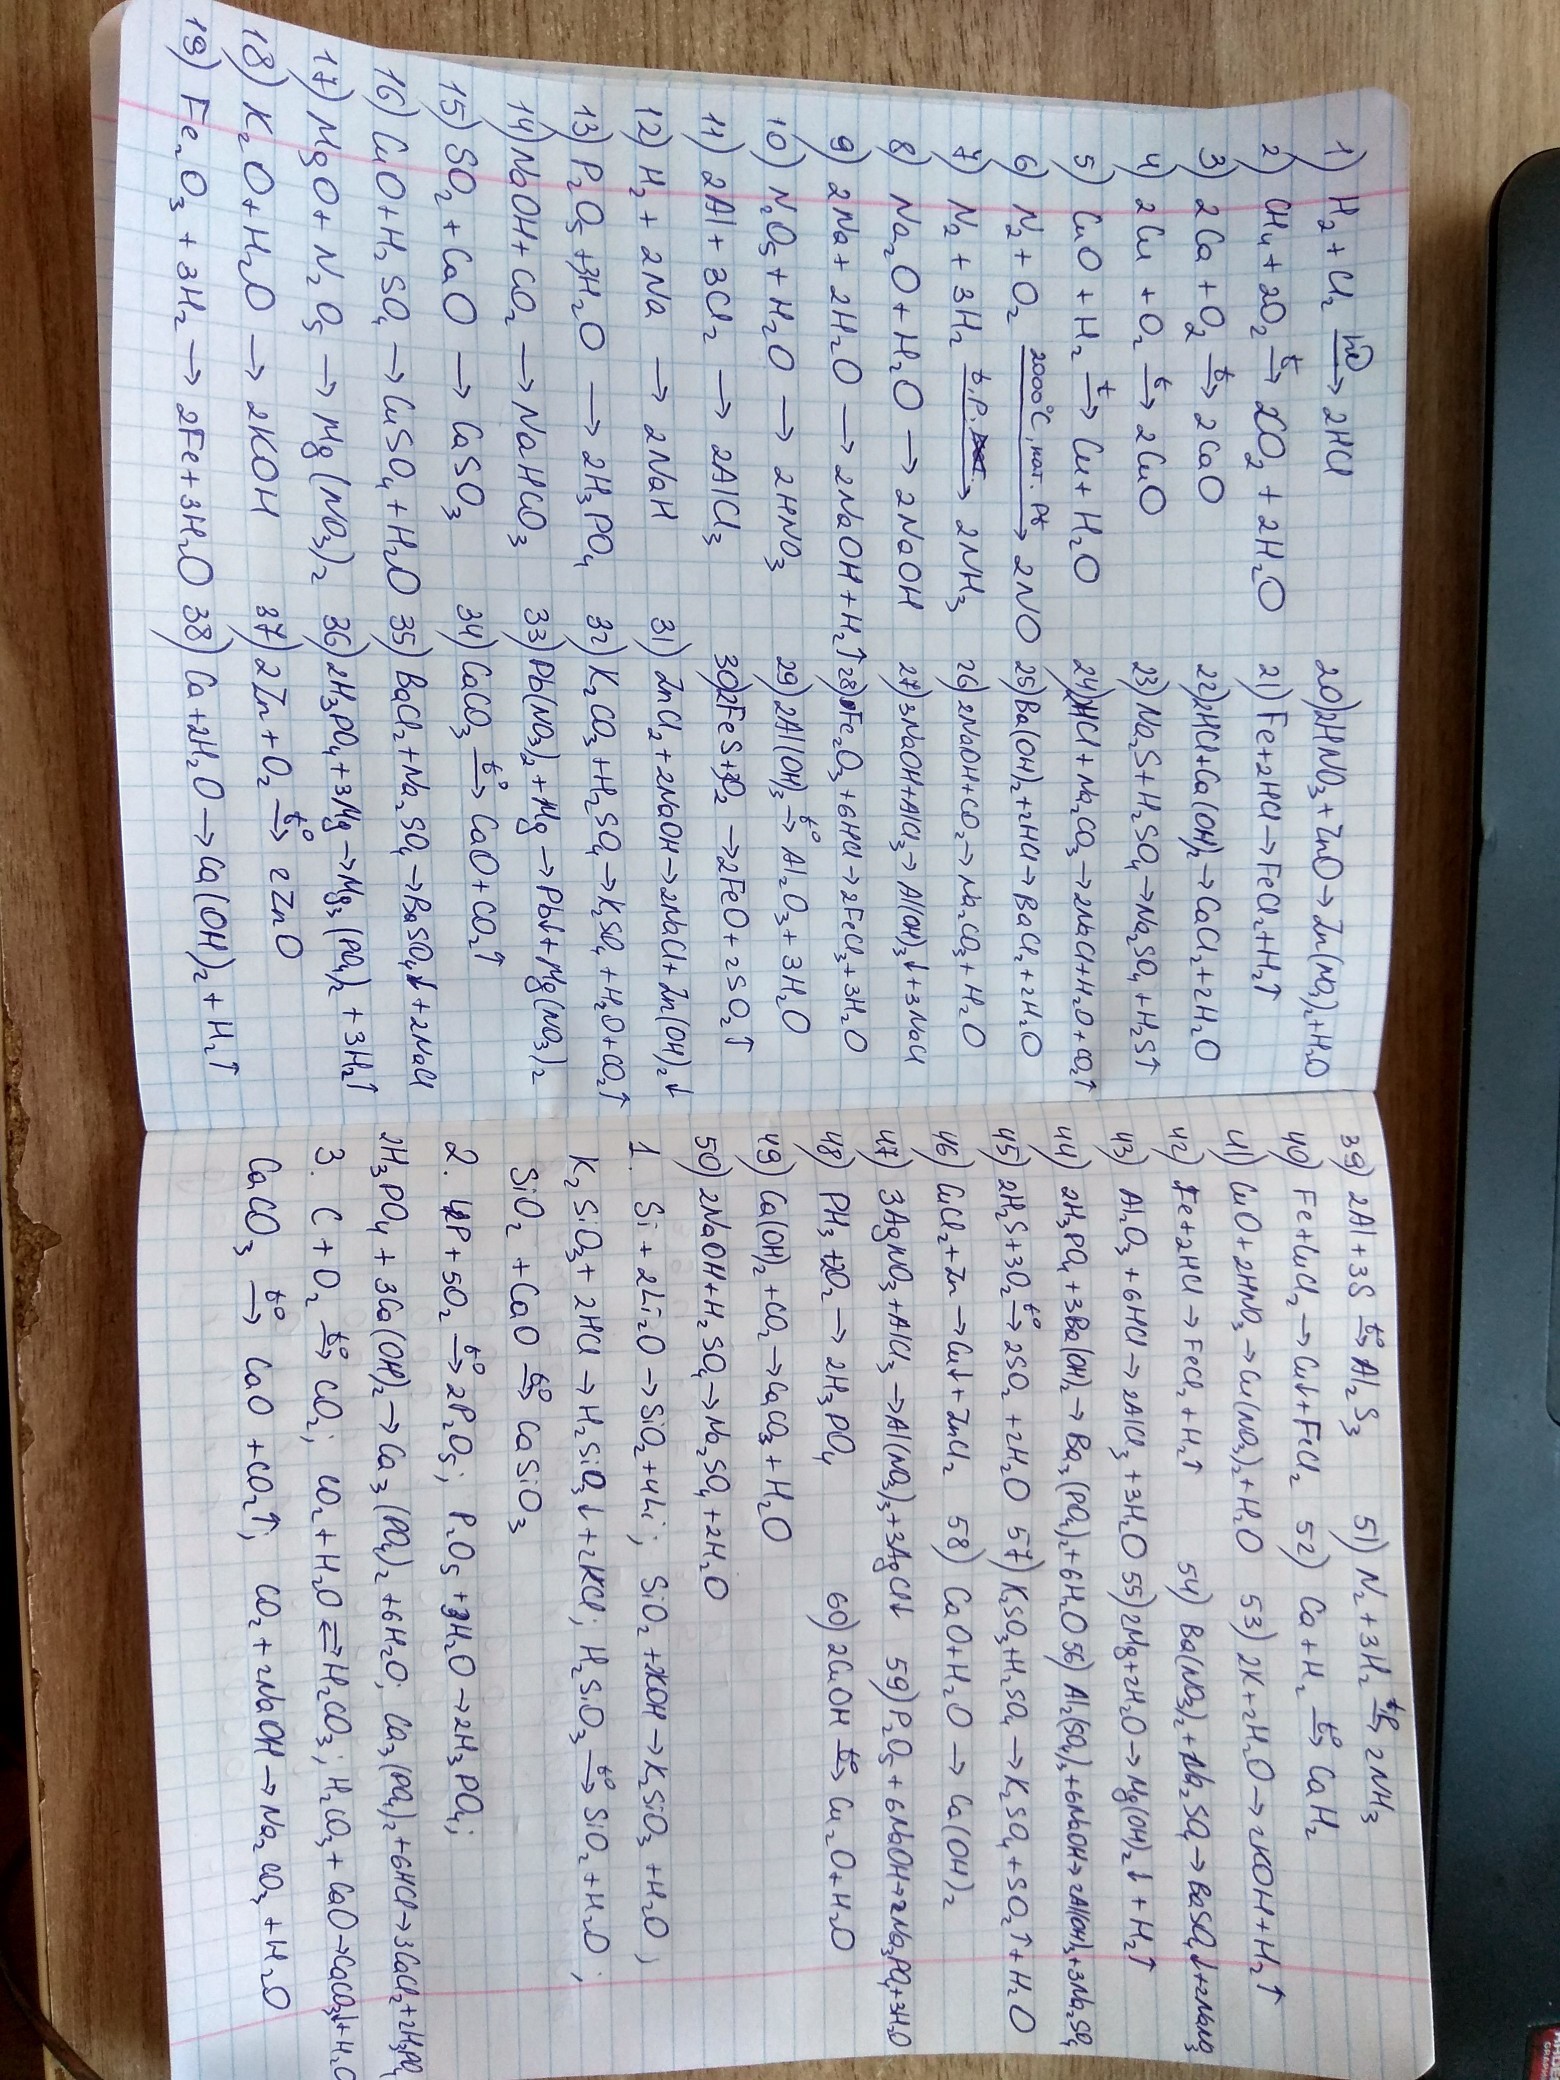 1) H₂ + Cl₂ →(hν) 2HCl
2) CH₄ + 2O₂ →(t) CO₂ + 2H₂O
3) 2Ca + O₂ →(t) 2CaO
4) 2Cu + O₂ →(t) 2CuO
5) CuO + H₂ →(t) Cu + H₂O
6) N₂ + O₂ →(2000°C, кат. Pt) 2NO
7) N₂ + 3H₂ →(t, P.) 2NH₃
8) Na₂O + H₂O → 2NaOH
9) 2Na + 2H₂O → 2NaOH + H₂↑
10) N₂O₅ + H₂O → 2HNO₃
11) 2Al + 3Cl₂ → 2AlCl₃
12) H₂ + 2Na → 2NaH
13) P₂O₅ + 3H₂O → 2H₃PO₄
14) NaOH + CO₂ → NaHCO₃
15) SO₂ + CaO → CaSO₃
16) CuO + H₂SO₄ → CuSO₄ + H₂O
17) MgO + N₂O₅ → Mg(NO₃)₂
18) K₂O + H₂O → 2KOH
19) Fe₂O₃ + 3H₂ → 2Fe + 3H₂O
20) 2HNO₃ + ZnO → Zn(NO₃)₂ + H₂O
21) Fe + 2HCl → FeCl₂ + H₂↑
22) 2HCl + Ca(OH)₂ → CaCl₂ + 2H₂O
23) Na₂S + H₂SO₄ → Na₂SO₄ + H₂S↑
24) 2HCl + Na₂CO₃ → 2NaCl + H₂O + CO₂↑
25) Ba(OH)₂ + 2HCl → BaCl₂ + 2H₂O
26) 2NaOH + CO₂ → Na₂CO₃ + H₂O
27) 3NaOH + AlCl₃ → Al(OH)₃↓ + 3NaCl
28) Fe₂O₃ + 6HCl → 2FeCl₃ + 3H₂O
29) 2Al(OH)₃ →(t°) Al₂O₃ + 3H₂O
30) 2FeS + 3O₂ → 2FeO + 2SO₂↑
31) ZnCl₂ + 2NaOH → 2NaCl + Zn(OH)₂↓
32) K₂CO₃ + H₂SO₄ → K₂SO₄ + H₂O + CO₂↑
33) Pb(NO₃)₂ + Mg → Pb↓ + Mg(NO₃)₂
34) CaCO₃ →(t°) CaO + CO₂↑
35) BaCl₂ + Na₂SO₄ → BaSO₄↓ + 2NaCl
36) 2H₃PO₄ + 3Mg → Mg₃(PO₄)₂ + 3H₂↑
37) 2Zn + O₂ →(t°) 2ZnO
38) Ca + 2H₂O → Ca(OH)₂ + H₂↑
39) 2Al + 3S →(t°) Al₂S₃
40) Fe + CuCl₂ → Cu↓ + FeCl₂
41) CuO + 2HNO₃ → Cu(NO₃)₂ + H₂O
42) Fe + 2HCl → FeCl₂ + H₂↑
43) Al₂O₃ + 6HCl → 2AlCl₃ + 3H₂O
44) 2H₃PO₄ + 3Ba(OH)₂ → Ba₃(PO₄)₂ + 6H₂O
45) 2H₂S + 3O₂ →(t°) 2SO₂ + 2H₂O
46) CuCl₂ + Zn → Cu↓ + ZnCl₂
47) 3AgNO₃ + AlCl₃ → Al(NO₃)₃ + 3AgCl↓
48) PH₃ + 2O₂ → 2H₃PO₄
49) Ca(OH)₂ + CO₂ → CaCO₃ + H₂O
50) 2NaOH + H₂SO₄ → Na₂SO₄ + 2H₂O
51) N₂ + 3H₂ →(t°P) 2NH₃
52) Ca + H₂ →(t°) CaH₂
53) 2K + 2H₂O → 2KOH + H₂↑
54) Ba(NO₃)₂ + Na₂SO₄ → BaSO₄↓ + 2NaNO₃
55) 2Mg + 2H₂O → Mg(OH)₂↓ + H₂↑
56) Al₂(SO₄)₃ + 6NaOH → 2Al(OH)₃ + 3Na₂SO₄
57) K₂SO₃ + H₂SO₄ → K₂SO₄ + SO₂↑ + H₂O
58) CaO + H₂O → Ca(OH)₂
59) P₂O₅ + 6NaOH → 2Na₃PO₄ + 3H₂O
60) 2CuOH →(t°) Cu₂O + H₂O
1. Si + 2Li₂O → SiO₂ + 4Li; SiO₂ + 2KOH → K₂SiO₃ + H₂O;
K₂SiO₃ + 2HCl → H₂SiO₃↓ + 2KCl; H₂SiO₃ →(t°) SiO₂ + H₂O;
SiO₂ + CaO →(t°) CaSiO₃
2. 4P + 5O₂ →(t°) 2P₂O₅; P₂O₅ + 3H₂O → 2H₃PO₄;
2H₃PO₄ + 3Ca(OH)₂ → Ca₃(PO₄)₂ + 6H₂O; Ca₃(PO₄)₂ + 6HCl → 3CaCl₂ + 2H₃PO₄
3. C + O₂ →(t°) CO₂; CO₂ + H₂O ⇄ H₂CO₃; H₂CO₃ + CaO → CaCO₃↓ + H₂O
CaCO₃ →(t°) CaO + CO₂↑; CO₂ + 2NaOH → Na₂CO₃ + H₂O